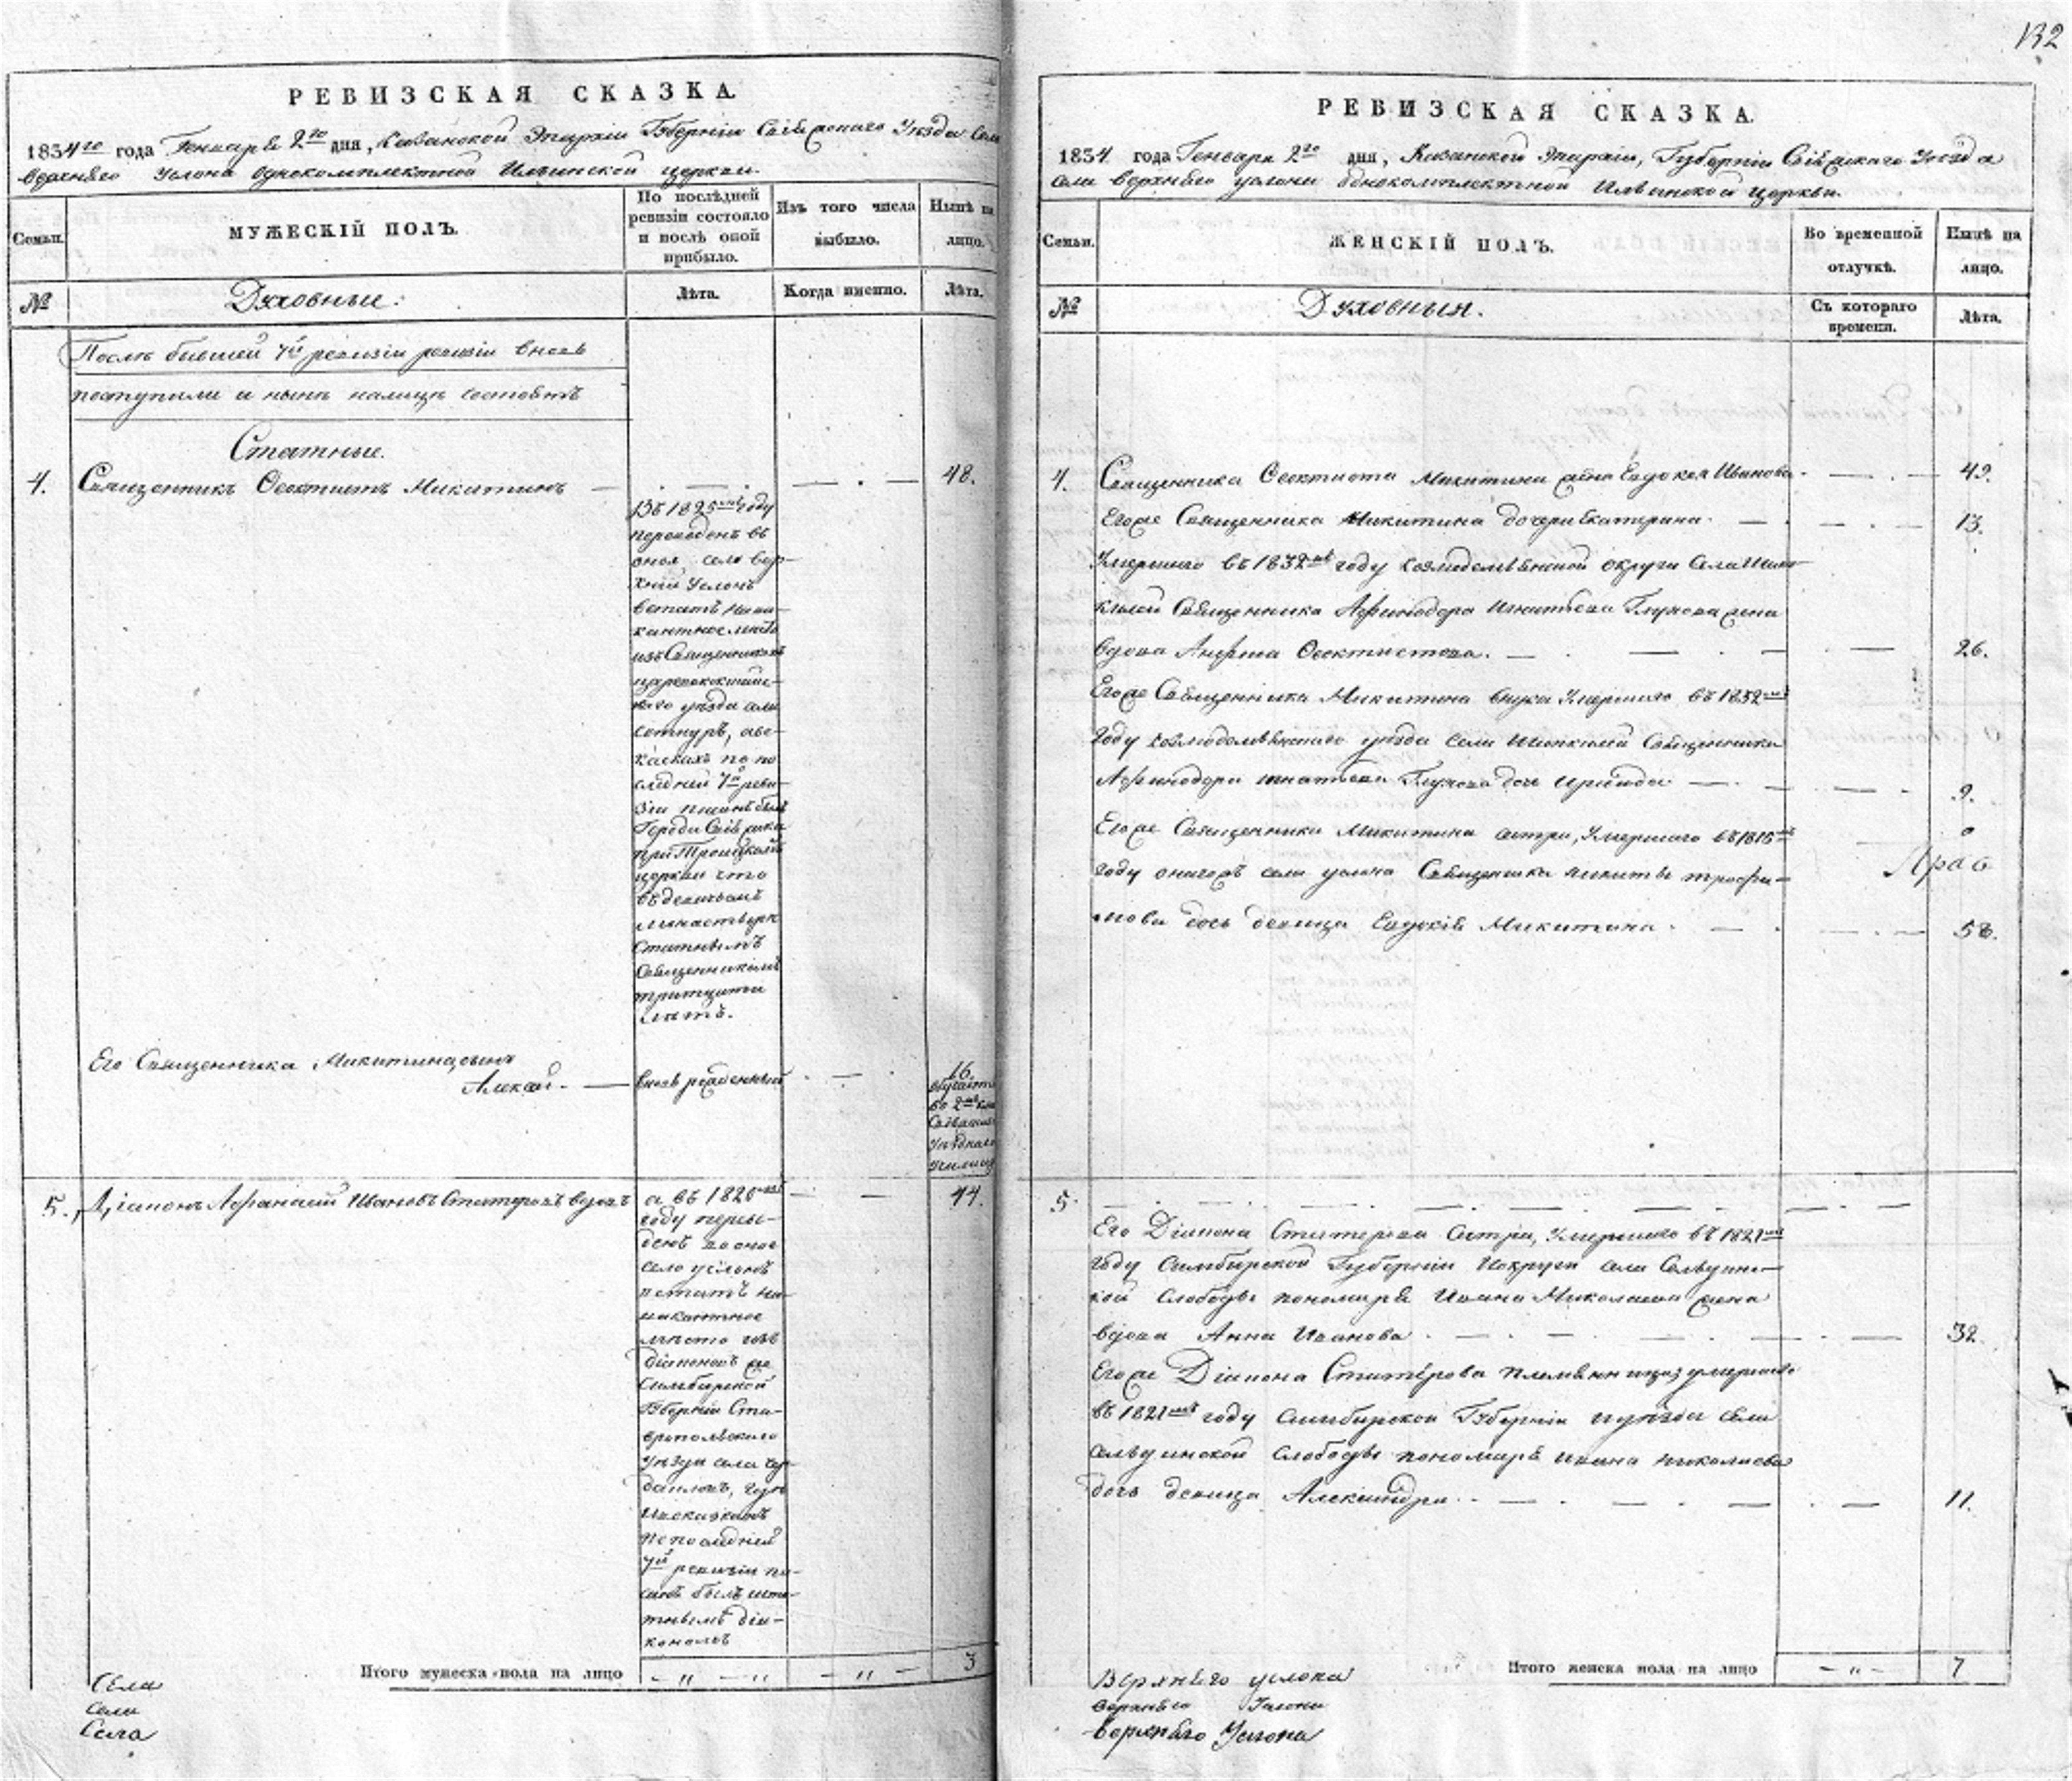 132
РЕВИЗСКАЯ СКАЗКА.
1834го года Генваря 2го дня, Казанской Эпархіи Губерніи Свіяжскаго Уѣзда Села
Верхняго Услона однокомплектной Ильинской церкви.
Семьи.
МУЖЕСКІЙ ПОЛЪ.
По послѣдней
ревизіи состояло
и послѣ оной
прибыло.
Изъ того числа
выбыло.
Нынѣ на
лицо.
№
Духовные.
Лѣта.
Когда именно.
Лѣта.
Послѣ бывшей 7й ревизіи ревизіи вновь
поступили и нынѣ налицѣ состоятъ
Статные.
4. Священникъ Ѳеоктистъ Микитинъ — 48.
Въ 1825мъ году
переведенъ въ
оное село Вер-
хній Услонъ
вакантное мѣсто
изъ Священниковъ
Царевококшайс-
каго уѣзда села
Сотнуръ,
сказкахъ по по
слѣдней 7й реви-
зіи
Города Свіяжска
при Троицкой
церкви что
въ девичьемъ
монастырѣ
Статнымъ
Священникомъ
тритцати
лѣтъ.
Его Священника Микитина сынъ
Алексѣй. — вновь рожденный — 16.
обучается
во 2мъ
Свіяжскаго
Уѣзднаго
Училища
5. Діаконъ Афанасій Ивановъ Статировъ вдовъ — 44.
а въ 1828мъ
году переве-
денъ во оное
село Услонъ
вакантное
мѣсто изъ
діаконовъ же
Симбирской
Губерніи Ста-
вропольскаго
Уѣзда села
по послѣдней
7й ревизіи пи-
санъ былъ шта-
тнымъ діа-
кономъ
Итого мужеска пола на лицо — 〃 — 〃 — 〃 — 3
Села
Села
Села
РЕВИЗСКАЯ СКАЗКА.
1834 года Генваря 2го дня, Казанской Эпархіи, Губерніи Свіяжскаго Уѣзда
Села Верхняго Услона однокомплектной Ильинской Церкви.
Семьи.
ЖЕНСКІЙ ПОЛЪ.
Во временной
отлучкѣ.
Нынѣ на
лицо.
№
Духовныя.
Съ котораго
времени.
Лѣта.
4. Священника Ѳеоктиста Микитина жена Евдокея Иванова — 49.
Егоже Священника Микитина дочери Екатерина — 13.
Умершаго въ 1832мъ году козмодемьянской округи Села
Священника Афинодора Игнатьева Глухова жена
вдова Анфиса Ѳеоктистова. — 26.
Егоже Священника Микитина внука Умершаго въ 1832мъ
году козмодемьянскаго уѣзда села Священника
Афинодора Игнатьева Глухова дочь Ираида — 9.
Егоже Священника Микитина сестра, Умершаго въ 1816мъ
году села услона Священника Микиты трофи-
мова дочь девица Евдокія Микитина. — 58.
5. — — —
Его Діакона Статирова Сестра, Умершаго въ 1821мъ
году Симбирской Губерніи Иокруги села
кой Слободы пономаря Ивана Николаева жена
вдова Анна Иванова — 32.
Егоже Діакона Статирова племянница умершаго
въ 1821мъ году Симбирской Губерніи иуѣзда Села
слободы пономаря ивана николаева
дочь девица Александра — 11.
Итого женска пола на лицо — 〃 — 7
Верхняго услона
верхняго Услона
Верхняго Услона